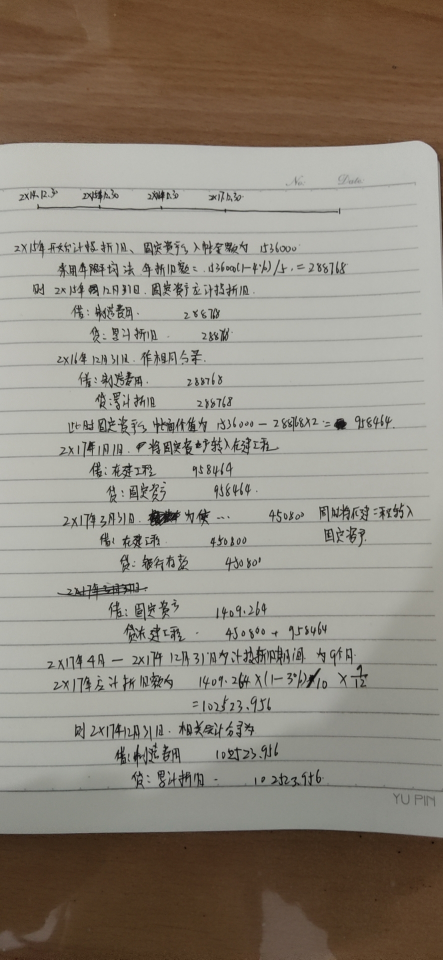 No.
Date.
2X14.12.30 2X15年12.30 2X16年12.30 2X17.12.30
2X15年开始计提折旧、固定资产入帐金额为 1536000
采用年限平均法 年折旧额=1536000(1-4%)/5.=288768
则 2X15年12月31日.固定资产应计提折旧.
借:制造费用. 288768
贷:累计折旧 288768
2X16年12月31日.作相同分录.
借:制造费用. 288768
贷:累计折旧 288768
此时固定资产 帐面价值为 1536000-288768X2= 958464.
2X17年1月1日. 将固定资产转入在建工程
借:在建工程 958464
贷:固定资产 958464.
2X17年3月31日. 为使… 450800 同时将在建工程转入
借:在建工程 450800 固定资产.
贷:银行存款 450800
借:固定资产 1409.264
贷:在建工程. 450800+958464
2X17年4月—2X17年12月31日 计提折旧期间 为9个月.
2X17年应计折旧额为 1409.264X(1-3%)/10 X 9/12
=102523.956
则2X17年12月31日.相关会计分录为
借:制造费用 102523.956
贷:累计折旧. 102523.956.
YU PIN